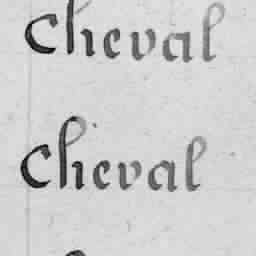 Cheval
Cheval